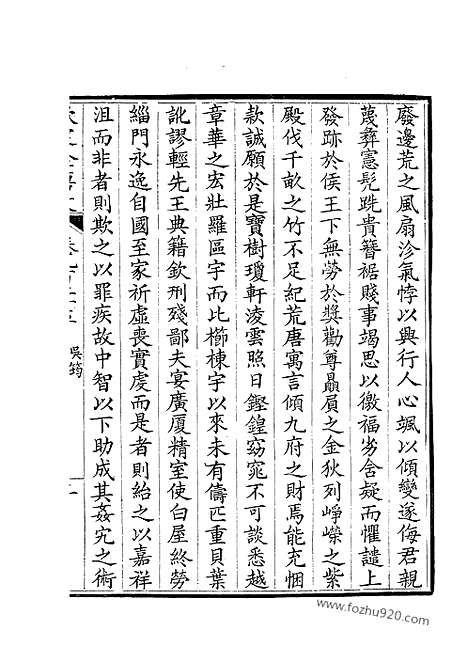 廢邊荒之風扇沴氣悖以興行人心颯以傾變遂侮君親
蔑彝憲髡跣貴簪裾賤事竭思以徼福劣舍疑而懼譴上
發跡於侯王下無勞於獎勸尊贔屓之金狄列崢嶸之紫
殿伐千畝之竹不足紀荒唐寓言傾九府之財焉能充悃
款誠願於是寶樹瓊軒凌雲照日鏗鍠窈窕不可談悉越
章華之宏壯羅區宇而比櫛棟宇以來未有儔匹重貝葉
訛謬輕先王典籍欽刑殘鄙夫宴廣厦精室使白屋終勞
緇門永逸自國至家祈虛喪實虔而是者則紿之以嘉祥
沮而非者則欺之以罪疾故中智以下助成其姦宄之術
吳筠
www.fozhu920.com